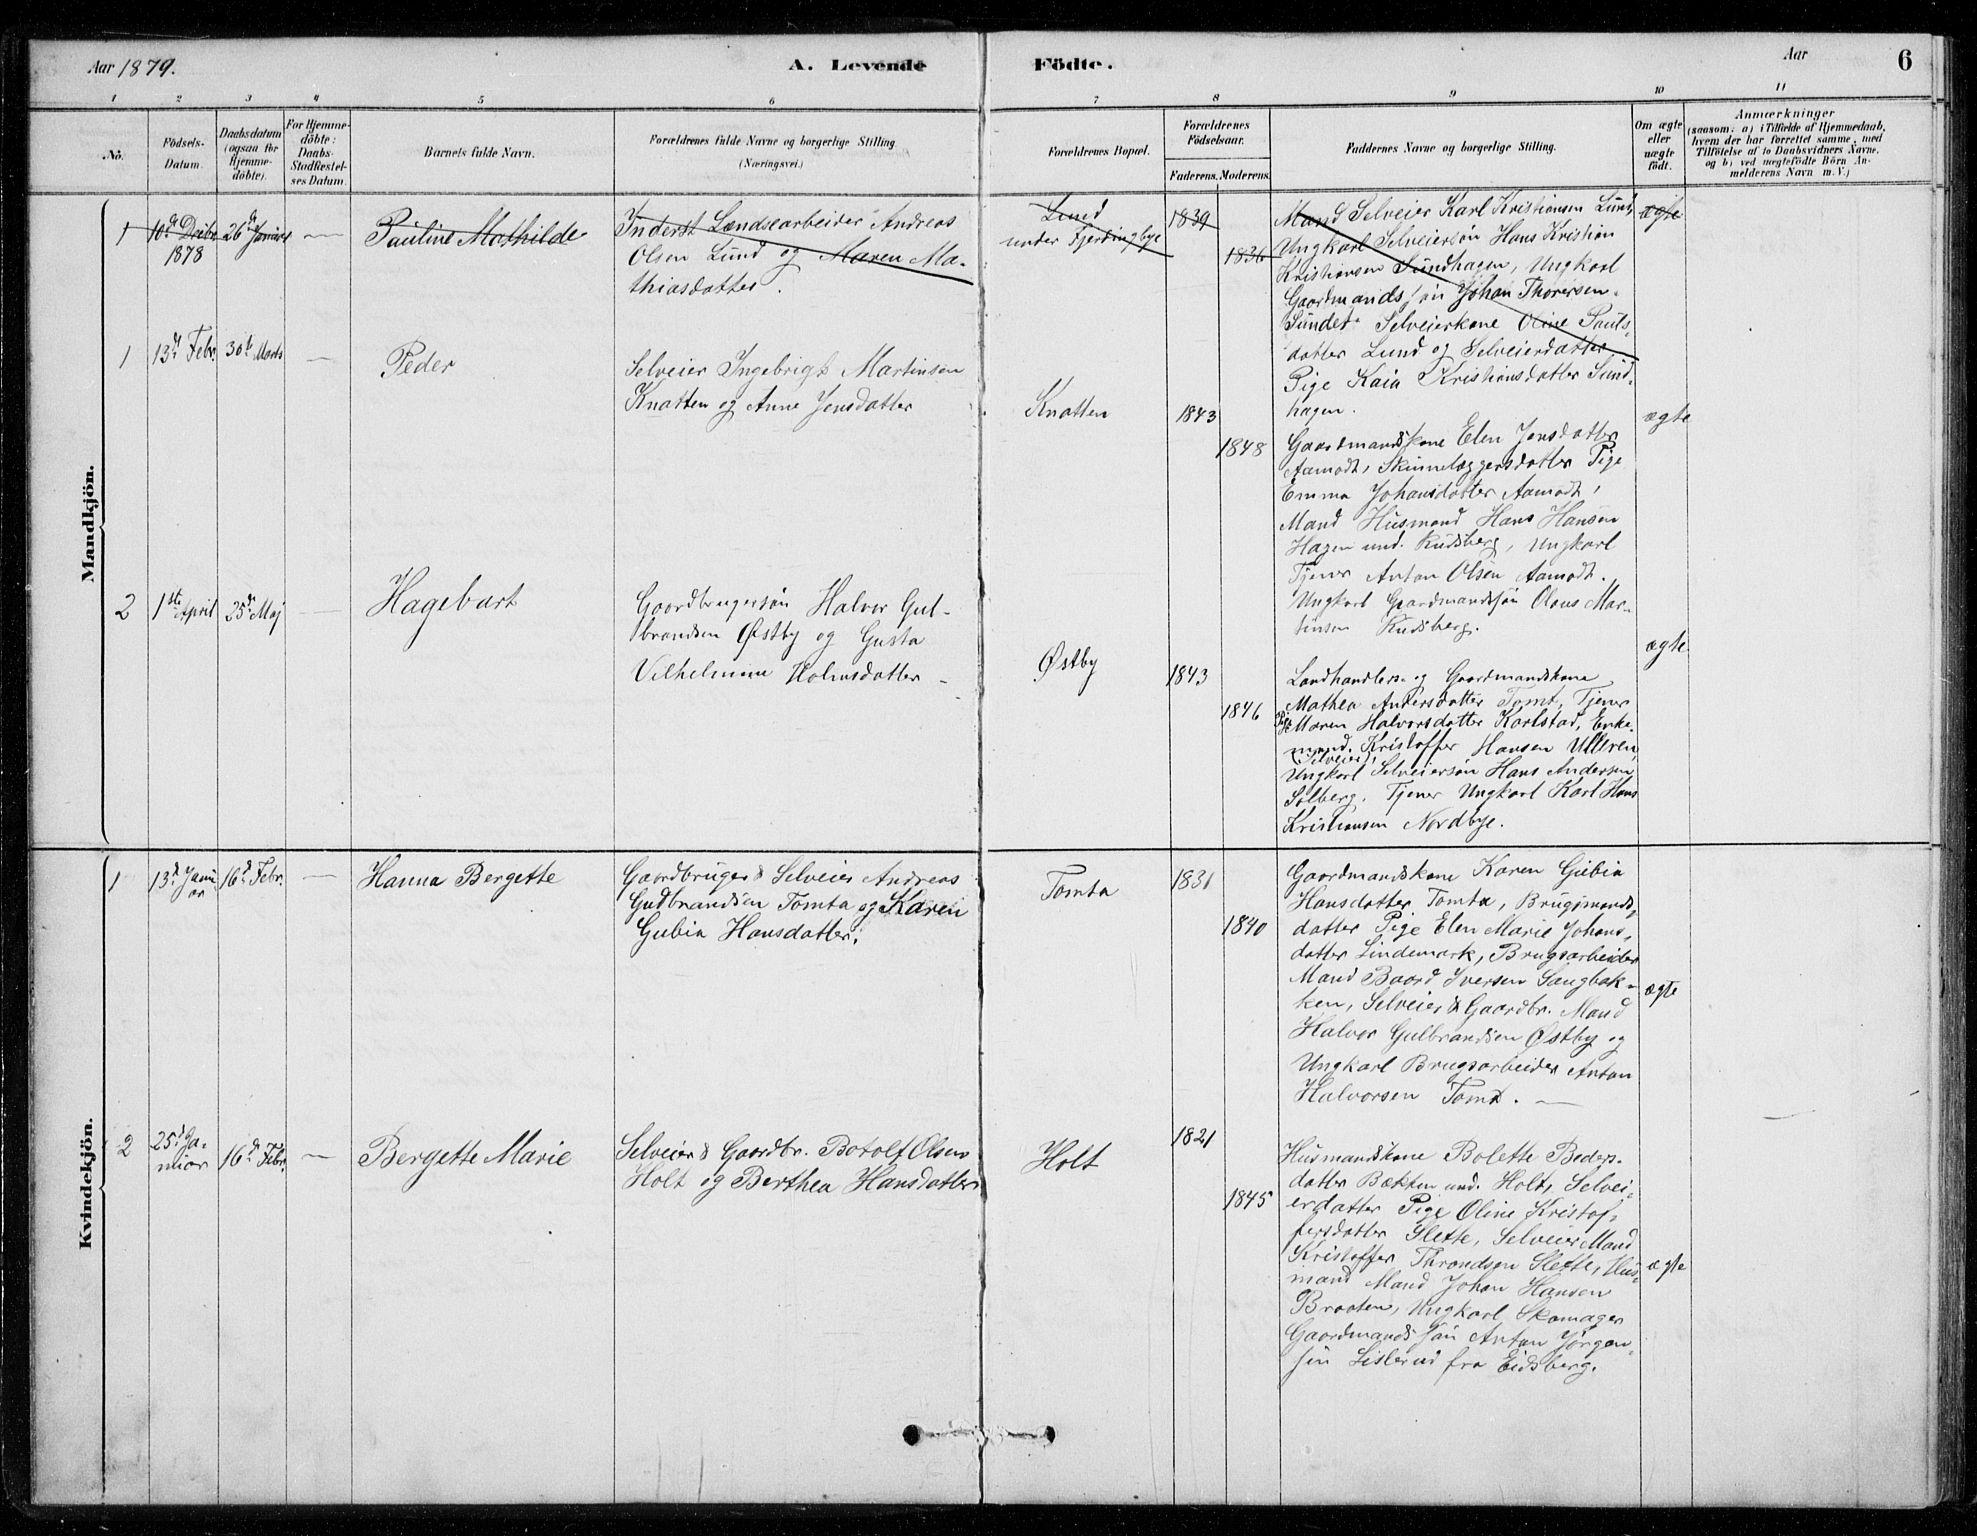 Aar 1879.
A. Levende
Födte.
Aar
6
1
2
3
4
5
6
7
8
9
10
11
No.
Födsels-
Datum.
Daabsdatum
(ogsaa for
Hjemme-
döbte).
For Hjemme-
döbte:
Daabs-
Stadfæstel-
ses Datum.
Barnets fulde Navn.
Forældrenes fulde Navne og borgerlige Stilling
(Næringsvei.)
Forældrenes Bopæl.
Forældrenes
Födselsaar.
Faderens.
Moderens.
Faddernes Navne og borgerlige Stilling.
Om ægte
eller
uægte
födt.
Anmærkninger
(saasom: a) i Tilfælde af Hjemmedaab,
hvem der har forrettet samme, med
Tilföielse af to Daabsvidners Navne,
og b) ved uægtefödte Börn An-
melderens Navn m. V.)
Mandkjön.
1
10de Dcbr
1878
26de Januar
—
Pauline Mathilde
Inderst Lændsearbeider Andreas
Olsen Lund og Maren Ma-
thiasdatter.
Lund
under Fjerdingbye
1839
1836
Mand Selveier Karl Kristiansen Lund,
Ungkarl Selveiersön Hans Kristian
Kristiansen Sundhagen, Ungkarl
Gaardmandssön Johan Thoresen
Sundet. Selveierkone Oline Pauls-
datter Lund og Selveierdatter
Pige Kaia Kristiansdatter Sund-
hagen.
ægte
1
13de Febr.
30te Marts
—
Peder
Selveier Ingebrigt Martinsen
Knatten og Anne Jensdatter
Knatten
1843
1848
Gaardmandskone Elen Jensdatter
Aamodt, Skinnelæggersdatter Pige
Emma Johansdatter Aamodt,
Mand Husmand Hans Hansen
Hagen und. Rudsberg, Ungkarl
Tjener Anton Olsen Aamodt.
Ungkarl Gaardmandssön Olaus Mar-
tinsen Rudsberg.
ægte
2
1ste April
25de Maj
—
Hagebart
Gaardbrugersön Halvor Gul-
brandsen Østby og Gusta
Vilhelmine Holmsdatter
Østby
1843
1846
Landhandlers- og Gaardmandskone
Mathea Andersdatter Tomt, Tjener
Pige Maren Halvorsdatter Karlstad, Enke-
mand. Kristoffer Hansen Ulleren,
(Selveier),
Ungkarl Selveiersön Hans Andersen
Solberg. Tjener Ungkarl Karl Hans
Kristiansen Nordbye.
ægte
Kvindekjön.
1
13de Janu
ar
16de Febr.
—
Hanna Bergette
Gaardbruger & Selveier Andreas
Gudbrandsen Tomta og Karen
Gubia Hansdatter.
Tomta
1831
1840
Gaardmandskone Karen Gubia
Hansdatter Tomta, Brugsmands-
datter Pige Elen Marie Johans-
datter Lindemark, Brugsarbeider
Mand Baard Iversen Saugbak-
ken, Selveier & Gaardbr. Mand
Halvor Gulbrandsen Østby og
Ungkarl Brugsarbeider Anton
Halvorsen Tomt. —
ægte
2
25de Ja-
nuar
16de Febr.
—
Bergette Marie
Selveier & Gaardbr. Botolf Olsen
Holt og Berthea Hansdatter
Holt
1821
1845
Husmandskone Bolette Peders-
datter Bækken und. Holt, Selvei-
erdatter Pige Oline Kristof-
fersdatter Slette, Selveier Mand
Kristoffer Throndsen Slette, Hus-
mand Mand Johan Hansen
Braaten, Ungkarl Skomager
Gaardmandssön Anton Jørgen-
sen Lislerud fra Eidsberg.
ægte